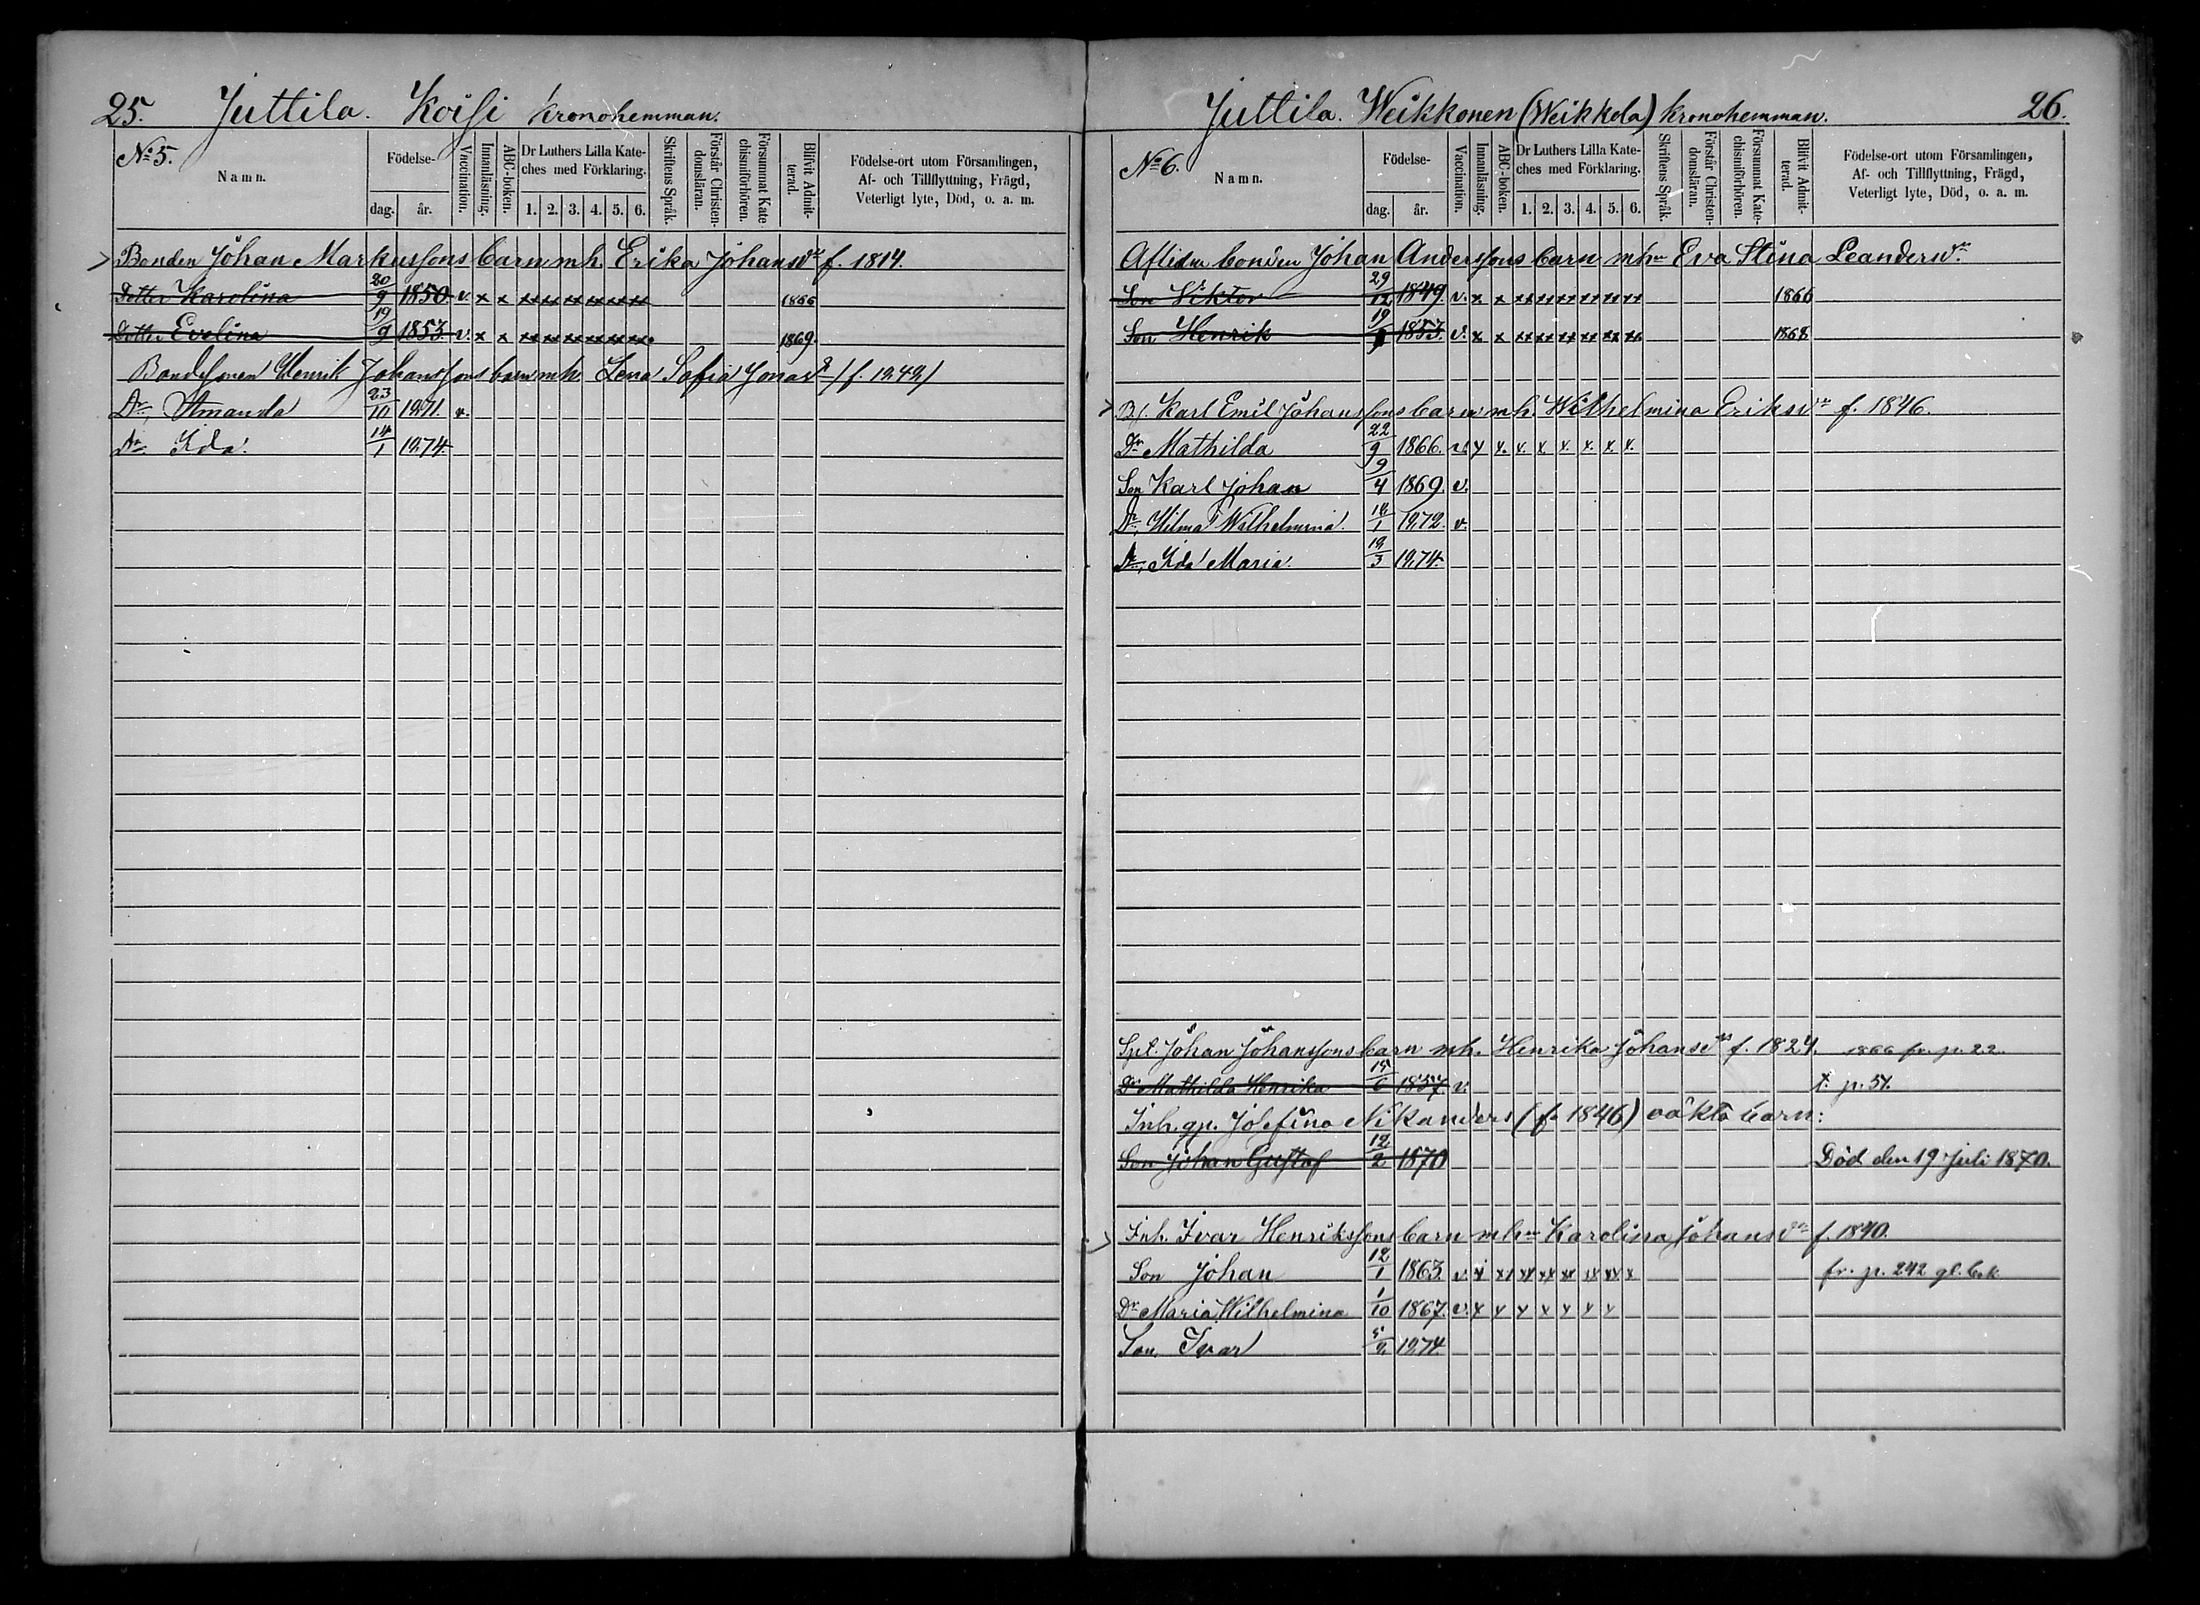 25. Juttila. Koisi kronohemman.
No 5.
Namn.
Födelse-
dag. år.
Vaccination.
Innanläsning.
ABC-boken.
Dr Luthers Lilla Kate-
ches med Förklaring.
1. 2. 3. 4. 5. 6.
Skriftens Språk.
Förstår Christen-
domsläran.
Försummat Kate
chismiförhören.
Blifvit Admit-
terad.
Födelse-ort utom Församlingen,
Af- och Tillflyttning, Frägd,
Veterligt lyte, Död, o. a. m.
Bonden Johan Markussons barn mh. Erika Johansdr f. 1814.
Dotter Karolina 20/9 1850 v. x x xx xx xx xx xx xx 1866
Dotter Evelina 19/9 1853 v. x x xx xx xx xx xx xx 1869.
Bondesonen Henrik Johanssons barn mh. Lena Sofia Jonasdr /f. 1842/
Dr. Amanda 23/10 1871 v.
Dr. Ida. 14/1 1874.
Juttila. Weikkonen (Weikkola) kronohemman. 26.
No 6.
Namn.
Födelse-
dag. år.
Vaccination.
Innanläsning.
ABC-boken.
Dr Luthers Lilla Kate-
ches med Förklaring.
1. 2. 3. 4. 5. 6.
Skriftens Språk.
Förstår Christen-
domsläran.
Försummat Kate-
chismiförhören.
Blifvit Admit-
terad.
Födelse-ort utom Församlingen,
Af- och Tillflyttning, Frägd,
Veterligt lyte, Död, o. a. m.
Aflidne bonden Johan Anderssons barn mhu Eva Stina Leandersdr
Son Viktor 29/12 1849. v. x x xx xx xx xx xx xx 1866
Son Henrik 19/9 1853. v. x x xx xx xx xx xx xx 1868
Bs. Karl Emil Johanssons barn mh. Wilhelmina Eriksdr f. 1846.
Dr Mathilda 22/9 1866. v. x x. x. x. x. x. x. x.
Son Karl Johan 9/4 1869. v.
Dr. Hilma Wilhelmina. 18/1 1872. v.
Dr. Ida Maria. 18/3 1874.
Spt. Johan Johanssons barn mh. Henrika Johansdr f. 1824. 1866 fr. p. 22.
Dr Mathilda Henrika 15/6 1857 v. t. p. 51.
Inh. qp. Josefina Nikanders (f. 1846) oäkta barn:
Son Johan Gustaf 12/2 1870 Död den 19 Juli 1870.
Inh. Ivar Henrikssons barn mhu Karolina Johansdr f. 1840.
Son Johan 12/1 1863. v. x xx xx xx xx xx xx x fr. p. 242 gl. b.k
Dr Maria Wilhelmina 1/10 1867. v. x x x x x x x
Son. Ivar 1874.